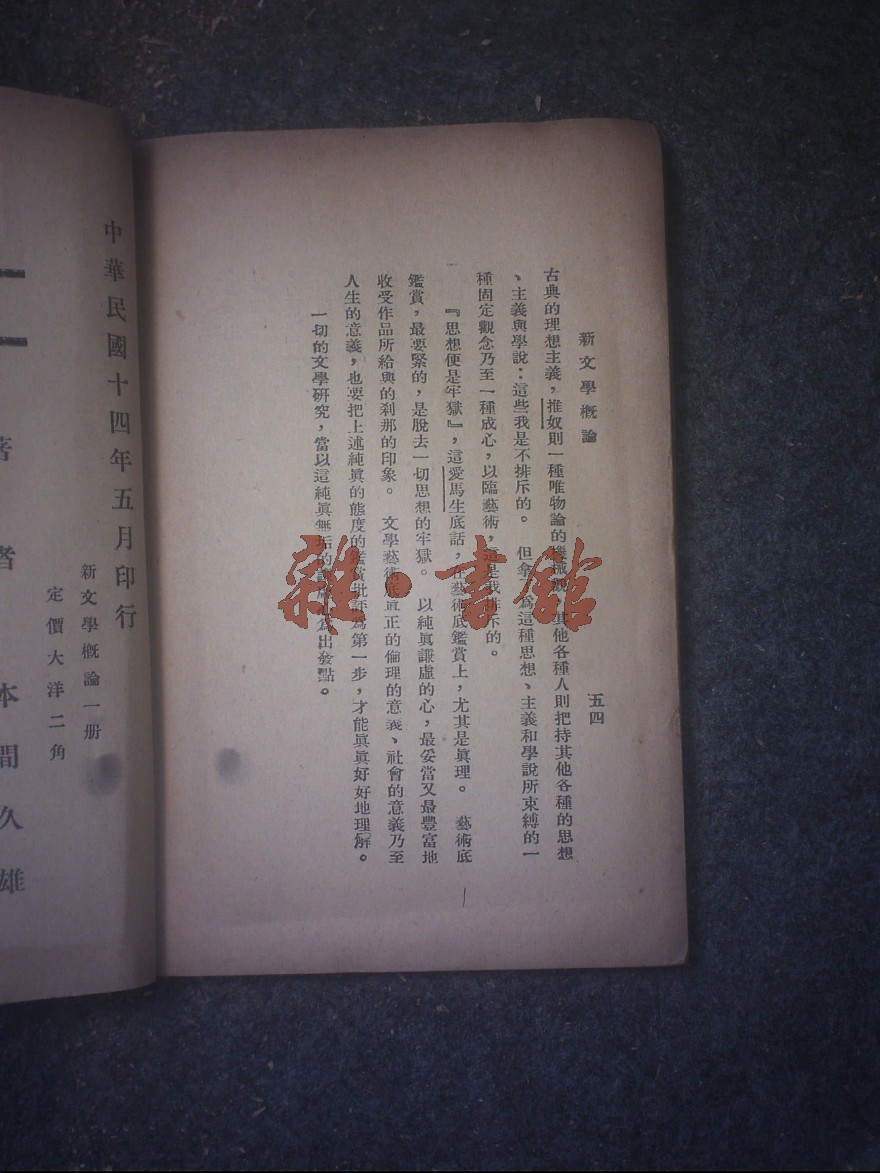 新文學概論
五四
古典的理想主義，推奴則一種唯物論的機械觀，其他各種人則把持其他各種的思想
、主義與學說：這些我是不排斥的。　但拿　爲這種思想、主義和學說所束縛的一
種固定觀念乃至一種成心，以臨藝術，這是我排斥的。
『思想便是牢獄』，這愛馬生底話，在藝術底鑑賞上，尤其是眞理。　藝術底
鑑賞，最要緊的，是脫去一切思想的牢獄。　以純眞謙虛的心，最妥當又最豐富地
收受作品所給與的刹那的印象。　文學藝術底眞正的倫理的意義、社會的意義乃至
人生的意義，也要把上述純眞的態度的鑑賞批評爲第一步，才能眞眞好好地理解。
一切的文學研究，當以這純眞無垢的　爲出發點。
中華民國十四年五月印行
新文學概論一册
定價大洋二角
著者　本間久雄
雜·書館